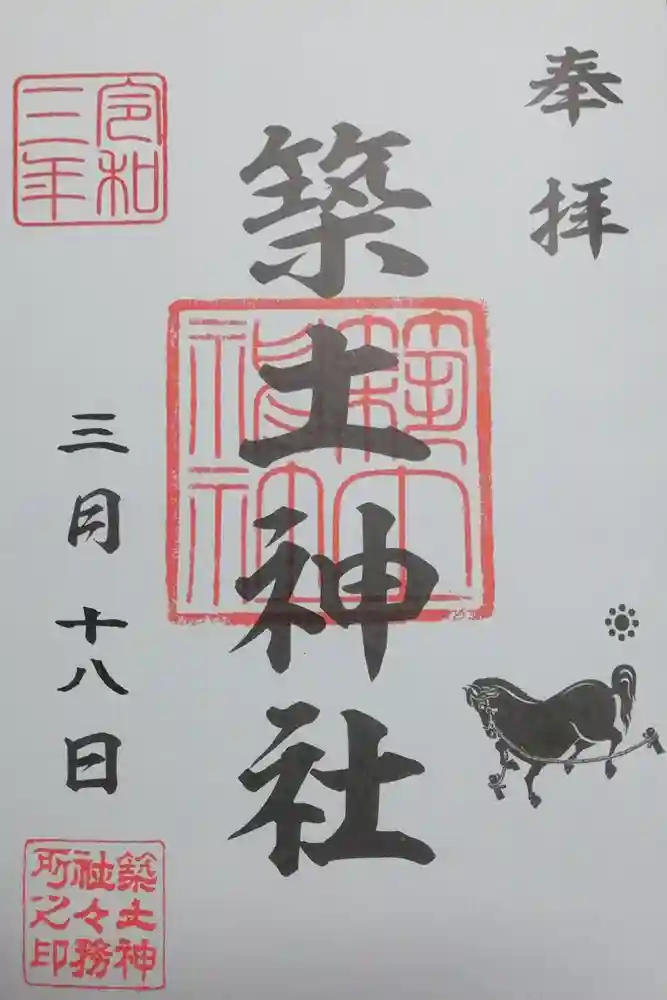 奉拝
築土神社
築土神社
令和
三年
三月十八日
築土神
社々務
所之印